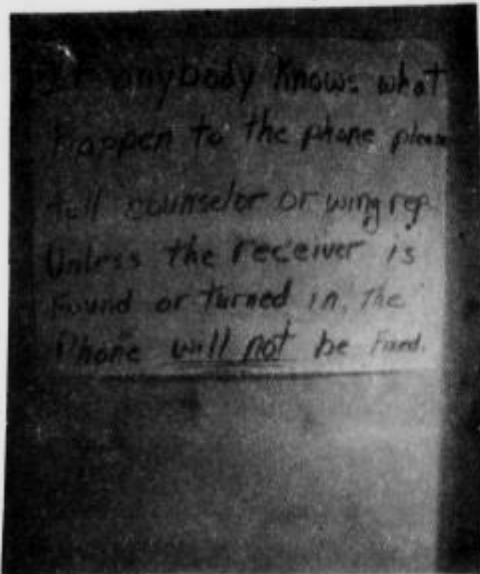 If anybody knows what
happen to the phone please
tell counselor or wing rep.
Unless the receiver is
found or turned in, the
Phone will not be fixed.